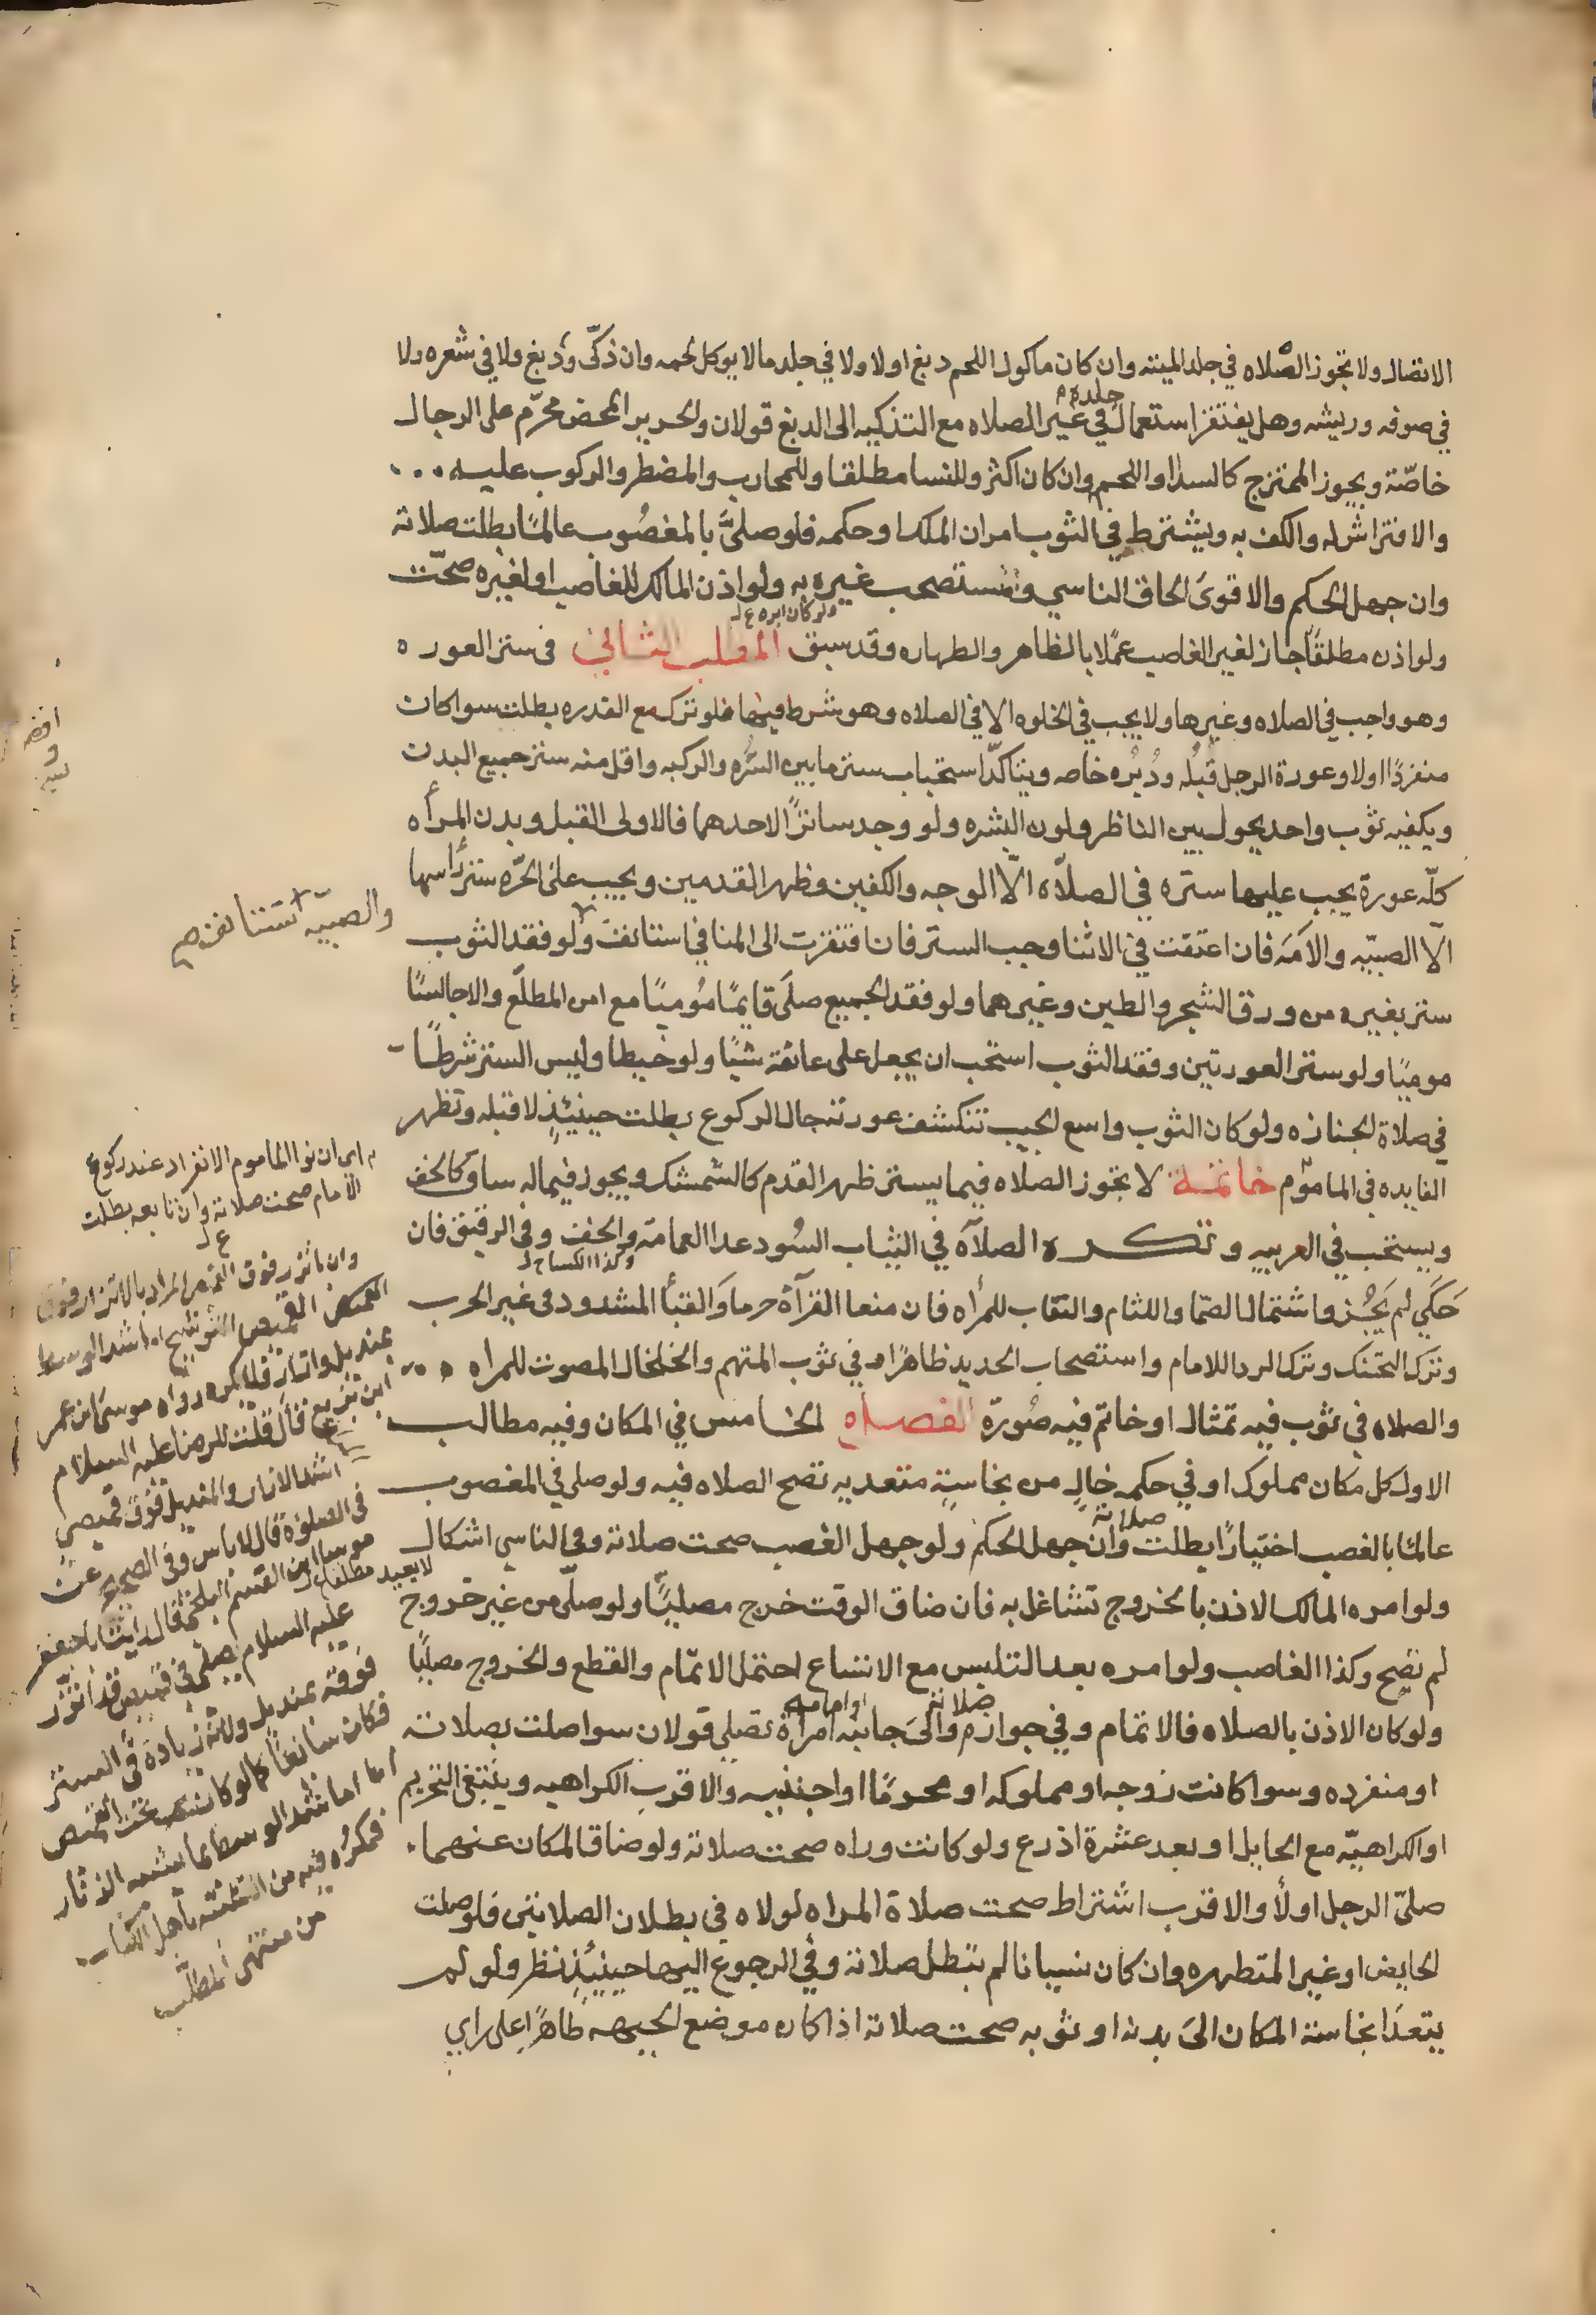 الاتصال ولا تجوز الصلاه في جلد الميته وان كان ماكول اللحم دبغ اولا ولا في جلد مالا يوكل لحمه وان ذكّى ودبغ ولا في شعره ولا
في صوفه وريشه وهل يفتقر استعمال جلده في غير الصلاه مع التذكيه الى الدبغ قولان والحرير المحض محرّم على الرجال
خاصّة ويجوز الممتزج كالسدا او اللحم وان كان اكثر وللنسا مطلقا وللمحارب والمضطر والركوب عليه
والافتراش له والكف به ويشترط في الثوب امران الملك او حكمه فلو صلىّ بالمغصُوب عالمًا بطلت صلاته
وان جهل الحكم والاقوىَ الحاق الناسي ومستصحب غيره به ولو اذن المالك للغاصب او لغيره صحّت
ولو اذن مطلقًا جاز لغير الغاصب عملًا بالظاهر والطهاره وقد سبق المطلب الثاني في ستر العوره
وهو واجب في الصلاه وغيرها ولا يجب في الخلوه الا في الصلاه وهو شرط فيها فلو ترك مع القدره بطلت سوا كان
منفردًا اولا وعورة الرجل قُبُله ودُبُره خاصه ويتاكدّ استحباب ستر ما بين السُّره والركبه واقل منه ستر جميع البدن
ويكفيه ثوب واحد يحول بين الناظر ولون البشره ولو وجد ساترًا لاحدهما فالاولى القبل وبدن المرأه
كلّه عورة يجب عليها ستره في الصلاه الّا الوجه والكفين وظهر القدمين ويجب على الحرّه ستر رأسها
الّا الصبيّه والاَمَه فان اعتقت في الاثنا وجب الستر فان افتقرت الى المنافي استانفت ولو فقد الثوب
ستر بغيره من ورق الشجر والطين وغيرهما ولو فقد الجميع صلّى قايمًا مُوميًا مع امن المطلّع والا جالسًا
موميًا ولو ستر العورتين وفقد الثوب استحب ان يجعل على عاتقه شيًا ولو خيطا وليس الستر شرطًا
في صلاة الجنازه ولو كان الثوب واسع الجيب تنكشف عورته حال الركوع بطلت حينئذٍ لا قبله وتظهر
الفايده في الماموم خاتمة لا تجوز الصلاه فيما يستر ظهر القدم كالشمشك ويجوز فيما له ساق كالخف
ويستحب في العربيه وتكره الصلاة في الثياب السُود عدا العمامة والخف وفي الرقيق فان
حَكَي لم يَجُز واشتمال الصّما واللثام والنقاب للمرأه فان منعا القرآة حرما والقبأ المشدود في غير الحرب
وترك التحنك وترك الردا للامام واستصحاب الحديد ظاهرًا وفي ثوب المتهم والخلخال المصوت للمراه
والصلاه في ثوب فيه تمثال او خاتم فيه صُورة الفصل الخامس في المكان وفيه مطالب
الاول كل مكان مملوك او في حكمه خالٍ من نجاسةٍ متعديه تصح الصلاه فيه ولو صلى في المغصوب
عالمًا بالغصب اختيارًا بطلت صلاته وان جهل الحكم ولو جهل الغصب صحت صلاته وفي الناسي اشكال
ولو امره المالك الاذن بالخروج تشاغل به فان ضاق الوقت خرج مصليًّا ولو صلّى من غير خروج
لم تصح وكذا الغاصب ولو امره بعد التلبس مع الاتساع احتمل الاتمّام والقطع والخروج مصليًّا
ولو كان الاذن بالصلاه فالاتمام وفي جواز صلاته والىَ جانبه او امامه امرأة تصلي قولان سوا صلت بصلاته
او منفرده وسوا كانت زوجه او مملوكه او محرمًا او اجنبيه والاقرب الكراهيه وينتفي التحريم
او الكراهيّه مع الحايل او بعد عشرة اذرع ولو كانت وراه صحت صلاته ولو ضاق المكان عنهما
صلىّ الرجل اولًا والاقرب اشتراط صحت صلاة المراه لولاه في بطلان الصلاتين فلو صلت
الحايض او غير المتطهره وان كان نسيانا لم تبطل صلاته وفي الرجوع اليها حينئذٍ نظر ولو لم
يتعدَا نجاسة المكان الىَ بدنه او ثوبه صحت صلاته اذا كان موضع الجبهه طاهرًا على راي
والصبيّه استثنا
اي ان نوا الماموم الانفراد عند ركوع
الامام صحت صلاته وان تابعه بطلت
وان ياتزر فوق القميص المراد بالاتزار فوق
القميص
بمنديل واتزار فلا يكره رواه موسى ابن عمر
ابن بزيع قال قلت للرضا عليه السلام
اشد الازار والمنديل فوق قميصي
في الصلوة قال لا باس وفي الصحيح عن
موسا ابن القسم البجلي قال رايت ابا جعفر
عليه السلام يصلي في قميص قد اتزر
فوقه بمنديل ولانه زيادة في الستر
فكان سائغًا كما لو كان تحت القميص
اما شد الوسط بما يشبه الزنار
فمكروه فيه من التشبّه باهل الكتاب
من منتهى المطلب